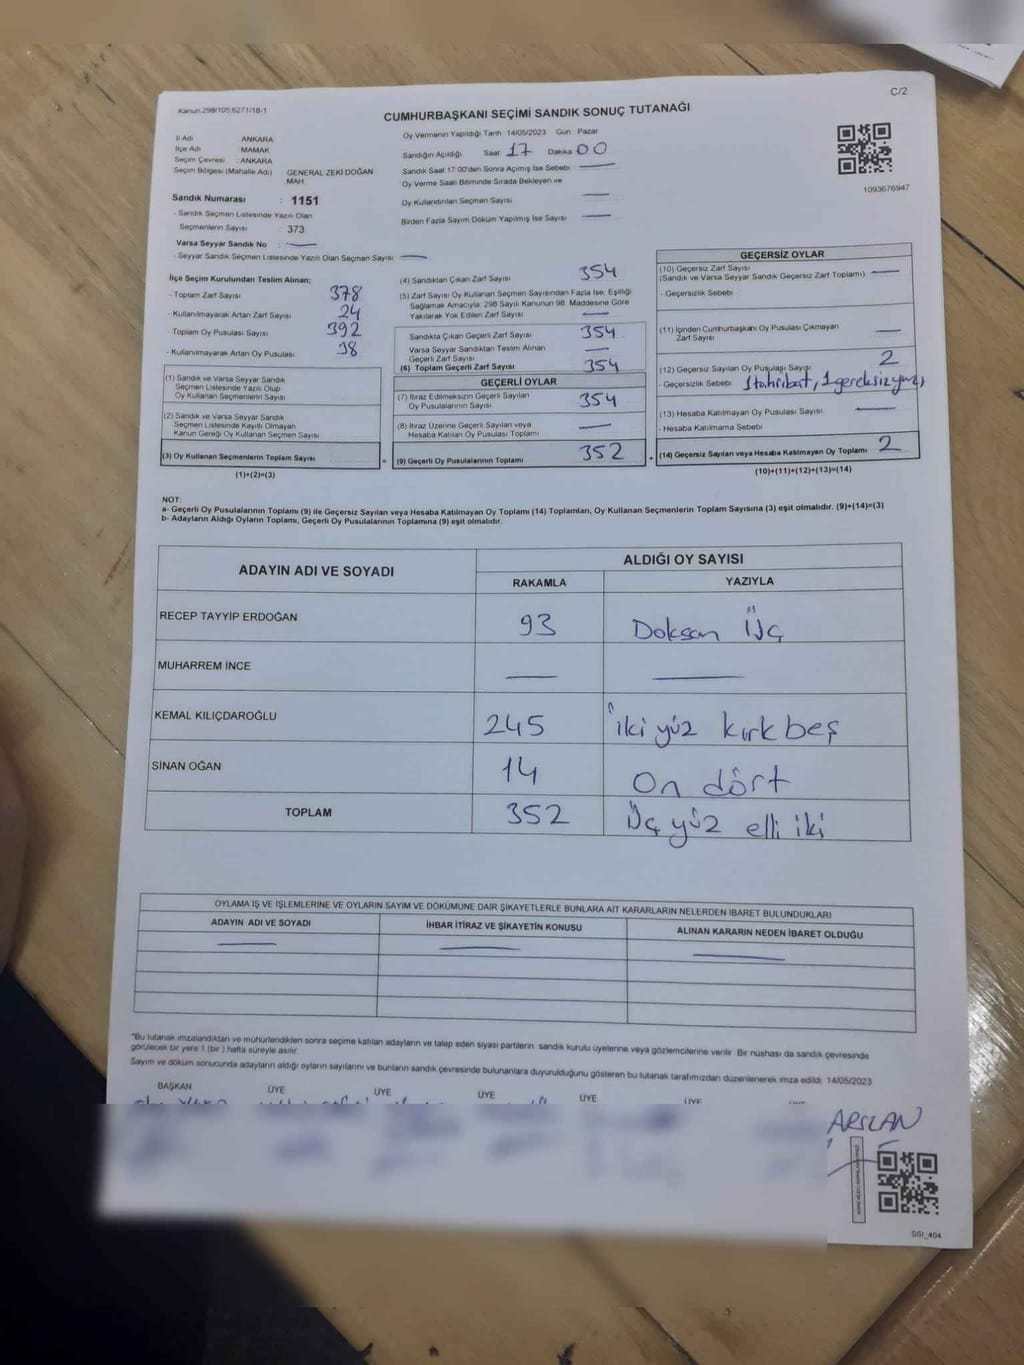 C/2
Kanun.298/105;6271/18-1
CUMHURBAŞKANI SEÇİMİ SANDIK SONUÇ TUTANAĞI
İl Adı ANKARA
İlçe Adı MAMAK
Seçim Çevresi : ANKARA
Seçim Bölgesi (Mahalle Adı) GENERAL ZEKİ DOĞAN MAH
Sandık Numarası : 1151
- Sandık Seçmen Listesinde Yazılı Olan
Seçmenlerin Sayısı : 373
Varsa Seyyar Sandık No : —
- Seyyar Sandık Seçmen Listesinde Yazılı Olan Seçmen Sayısı : —
Oy Vermenin Yapıldığı Tarih 14/05/2023 Gün : Pazar
Sandığın Açıldığı Saat 17 Dakika 00
Sandık Saat 17:00'den Sonra Açımış İse Sebebi : —
Oy Verme Saati Bitiminde Sırada Bekleyen ve
Oy Kullandırılan Seçmen Sayısı : —
Birden Fazla Sayım Döküm Yapılmış İse Sayısı : —
1093676947
İlçe Seçim Kurulundan Teslim Alınan;
- Toplam Zarf Sayısı 378
- Kullanılmayarak Artan Zarf Sayısı 24
- Toplam Oy Pusulası Sayısı 392
- Kullanılmayarak Artan Oy Pusulası 38
(1) Sandık ve Varsa Seyyar Sandık
Seçmen Listesinde Yazılı Olup
Oy Kullanan Seçmenlerin Sayısı
(2) Sandık ve Varsa Seyyar Sandık
Seçmen Listesinde Kayıtlı Olmayan
Kanun Gereği Oy Kullanan Seçmen Sayısı
(3) Oy Kullanan Seçmenlerin Toplam Sayısı
(1)+(2)=(3)
(4) Sandıktan Çıkan Zarf Sayısı 354
(5) Zarf Sayısı Oy Kullanan Seçmen Sayısından Fazla İse, Eşitliği
Sağlamak Amacıyla; 298 Sayılı Kanunun 98. Maddesine Göre
Yakılarak Yok Edilen Zarf Sayısı —
Sandıkta Çıkan Geçerli Zarf Sayısı 354
Varsa Seyyar Sandıktan Teslim Alınan
Geçerli Zarf Sayısı —
(6) Toplam Geçerli Zarf Sayısı 354
GEÇERLİ OYLAR
(7) İtiraz Edilmeksizin Geçerli Sayılan
Oy Pusulalarının Sayısı 354
(8) İtiraz Üzerine Geçerli Sayılan veya
Hesaba Katılan Oy Pusulası Toplamı —
= (9) Geçerli Oy Pusulalarının Toplamı 352
GEÇERSİZ OYLAR
(10) Geçersiz Zarf Sayısı —
(Sandık ve Varsa Seyyar Sandık Geçersiz Zarf Toplamı)
- Geçersizlik Sebebi
(11) İçinden Cumhurbaşkanı Oy Pusulası Çıkmayan
Zarf Sayısı —
(12) Geçersiz Sayılan Oy Pusulası Sayısı 2
- Geçersizlik Sebebi 1 tahribat, 1 gereksiz yazı
(13) Hesaba Katılmayan Oy Pusulası Sayısı —
- Hesaba Katılmama Sebebi
+ (14) Geçersiz Sayılan veya Hesaba Katılmayan Oy Toplamı 2
(10)+(11)+(12)+(13)=(14)
NOT:
a- Geçerli Oy Pusulalarının Toplamı (9) ile Geçersiz Sayılan veya Hesaba Katılmayan Oy Toplamı (14) Toplamları, Oy Kullanan Seçmenlerin Toplam Sayısına (3) eşit olmalıdır. (9)+(14)=(3)
b- Adayların Aldığı Oyların Toplamı, Geçerli Oy Pusulalarının Toplamına (9) eşit olmalıdır.
ADAYIN ADI VE SOYADI ALDIĞI OY SAYISI
RAKAMLA YAZIYLA
RECEP TAYYİP ERDOĞAN 93 Doksan Üç
MUHARREM İNCE — —
KEMAL KILIÇDAROĞLU 245 iki yüz kırk beş
SİNAN OĞAN 14 On dört
TOPLAM 352 Üç yüz elli iki
OYLAMA İŞ VE İŞLEMLERİNE VE OYLARIN SAYIM VE DÖKÜMÜNE DAİR ŞİKAYETLERLE BUNLARA AİT KARARLARIN NELERDEN İBARET BULUNDUKLARI
ADAYIN ADI VE SOYADI İHBAR İTİRAZ VE ŞİKAYETİN KONUSU ALINAN KARARIN NEDEN İBARET OLDUĞU
— — —
"Bu tutanak imzalandıktan ve mühürlendikten sonra seçime katılan adayların ve talep eden siyasi partilerin sandık kurulu üyelerine veya gözlemcilerine verilir. Bir nüshası da sandık çevresinde
görülecek bir yere 1 (bir ) hafta süreyle asılır.
Sayım ve döküm sonucunda adayların aldığı oyların sayılarını ve bunların sandık çevresinde bulunanlara duyurulduğunu gösteren bu tutanak tarafımızdan düzenlenerek imza edildi. 14/05/2023
BAŞKAN ÜYE ÜYE ÜYE ÜYE ÜYE
ARSLAN
SSI_404